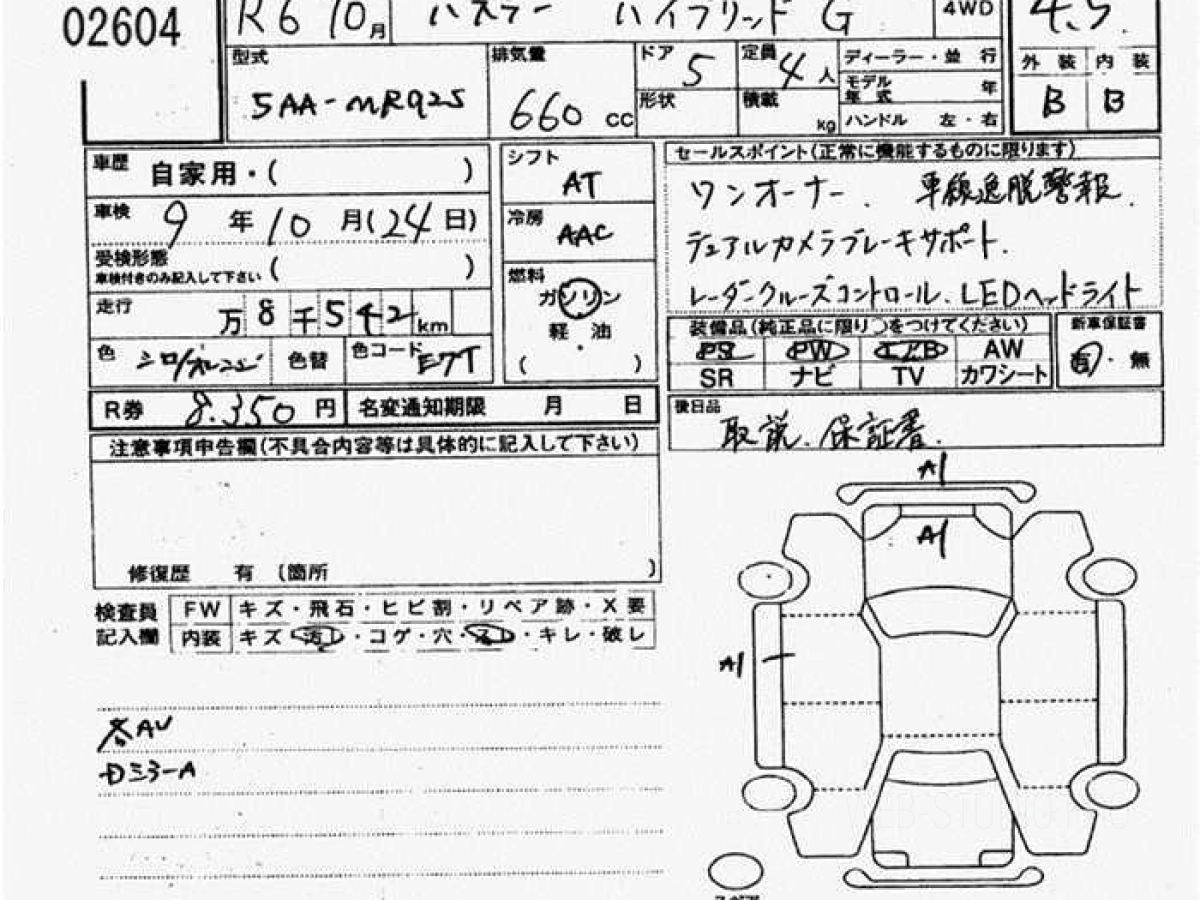 02604
R6 10月 ハスラー ハイブリッド G 4WD 4.5
型式 5AA-MR92S 排気量 660 cc ドア 5 定員 4人 ディーラー・並 行
形状 積載 kg モデル年式 年
ハンドル 左・右
外 装 内 装
B B
車歴 自家用・( )
車検 9年10月(24日)
受検形態
車検付きのみ記入して下さい ( )
走行 万8千542km
色 シロ/オレンジ 色替 色コード E7T
シフト AT
冷房 AAC
燃料 ガソリン
軽 油
( )
セールスポイント(正常に機能するものに限ります)
ワンオーナー. 車線逸脱警報.
デュアルカメラブレーキサポート.
レーダークルーズコントロール. LEDヘッドライト
装備品(純正品に限り○をつけてください)
PS PW エアB AW
SR ナビ TV カワシート
新車保証書
有・無
R券 8.350円 名変通知期限 月 日
後日品 取説. 保証書.
注意事項申告欄(不具合内容等は具体的に記入して下さい)
修復歴 有 (箇所 )
検査員
記入欄
FW キズ・飛石・ヒビ割・リペア跡・X要
内装 キズ・汚レ・コゲ・穴・スレ・キレ・破レ
A1
A1
A1
各AU
Dミラ-A